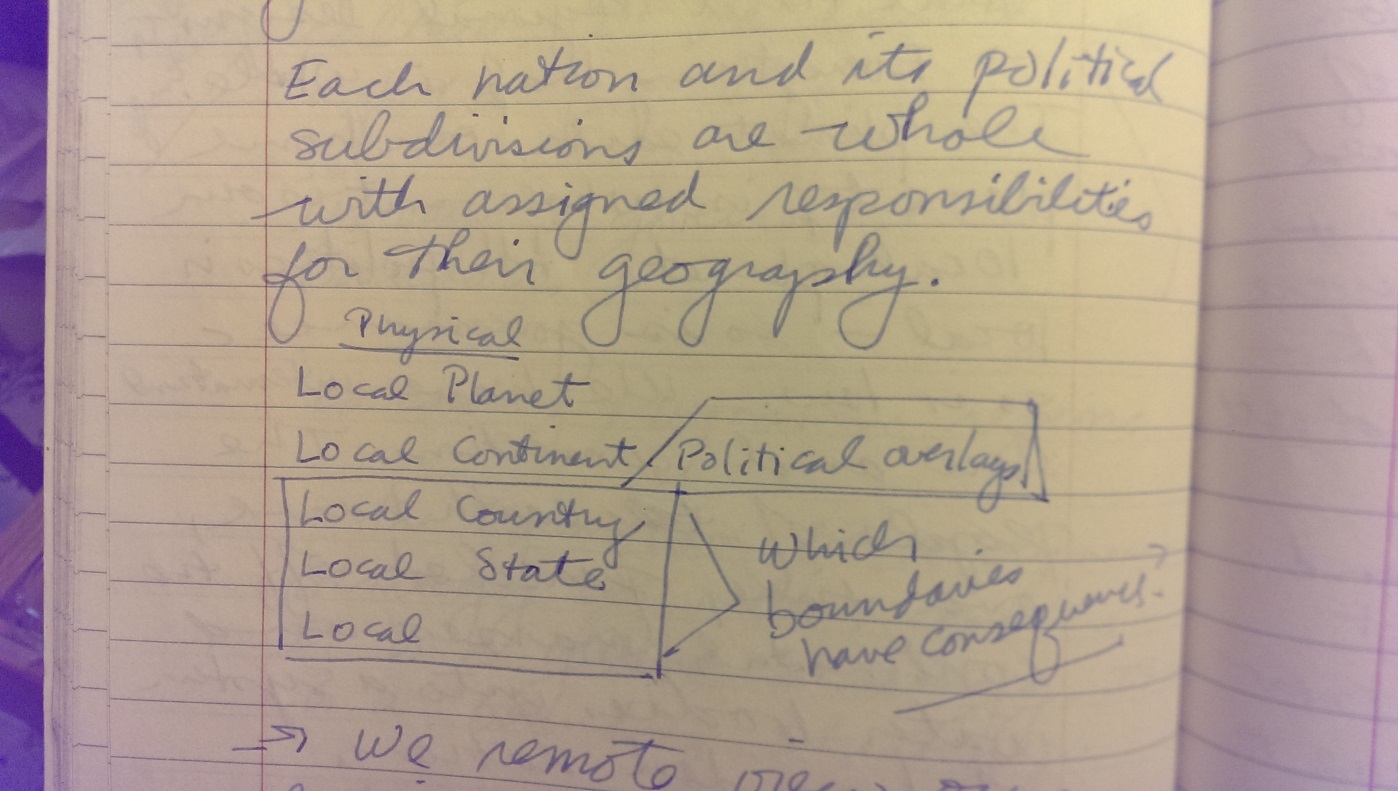 Each nation and its political
subdivisions are whole
with assigned responsibilities
for their geography.
Physical
Local Planet
Local Continent
Political overlays
Local Country
Local State
Local
which
boundaries
have consequences.
→ We remote